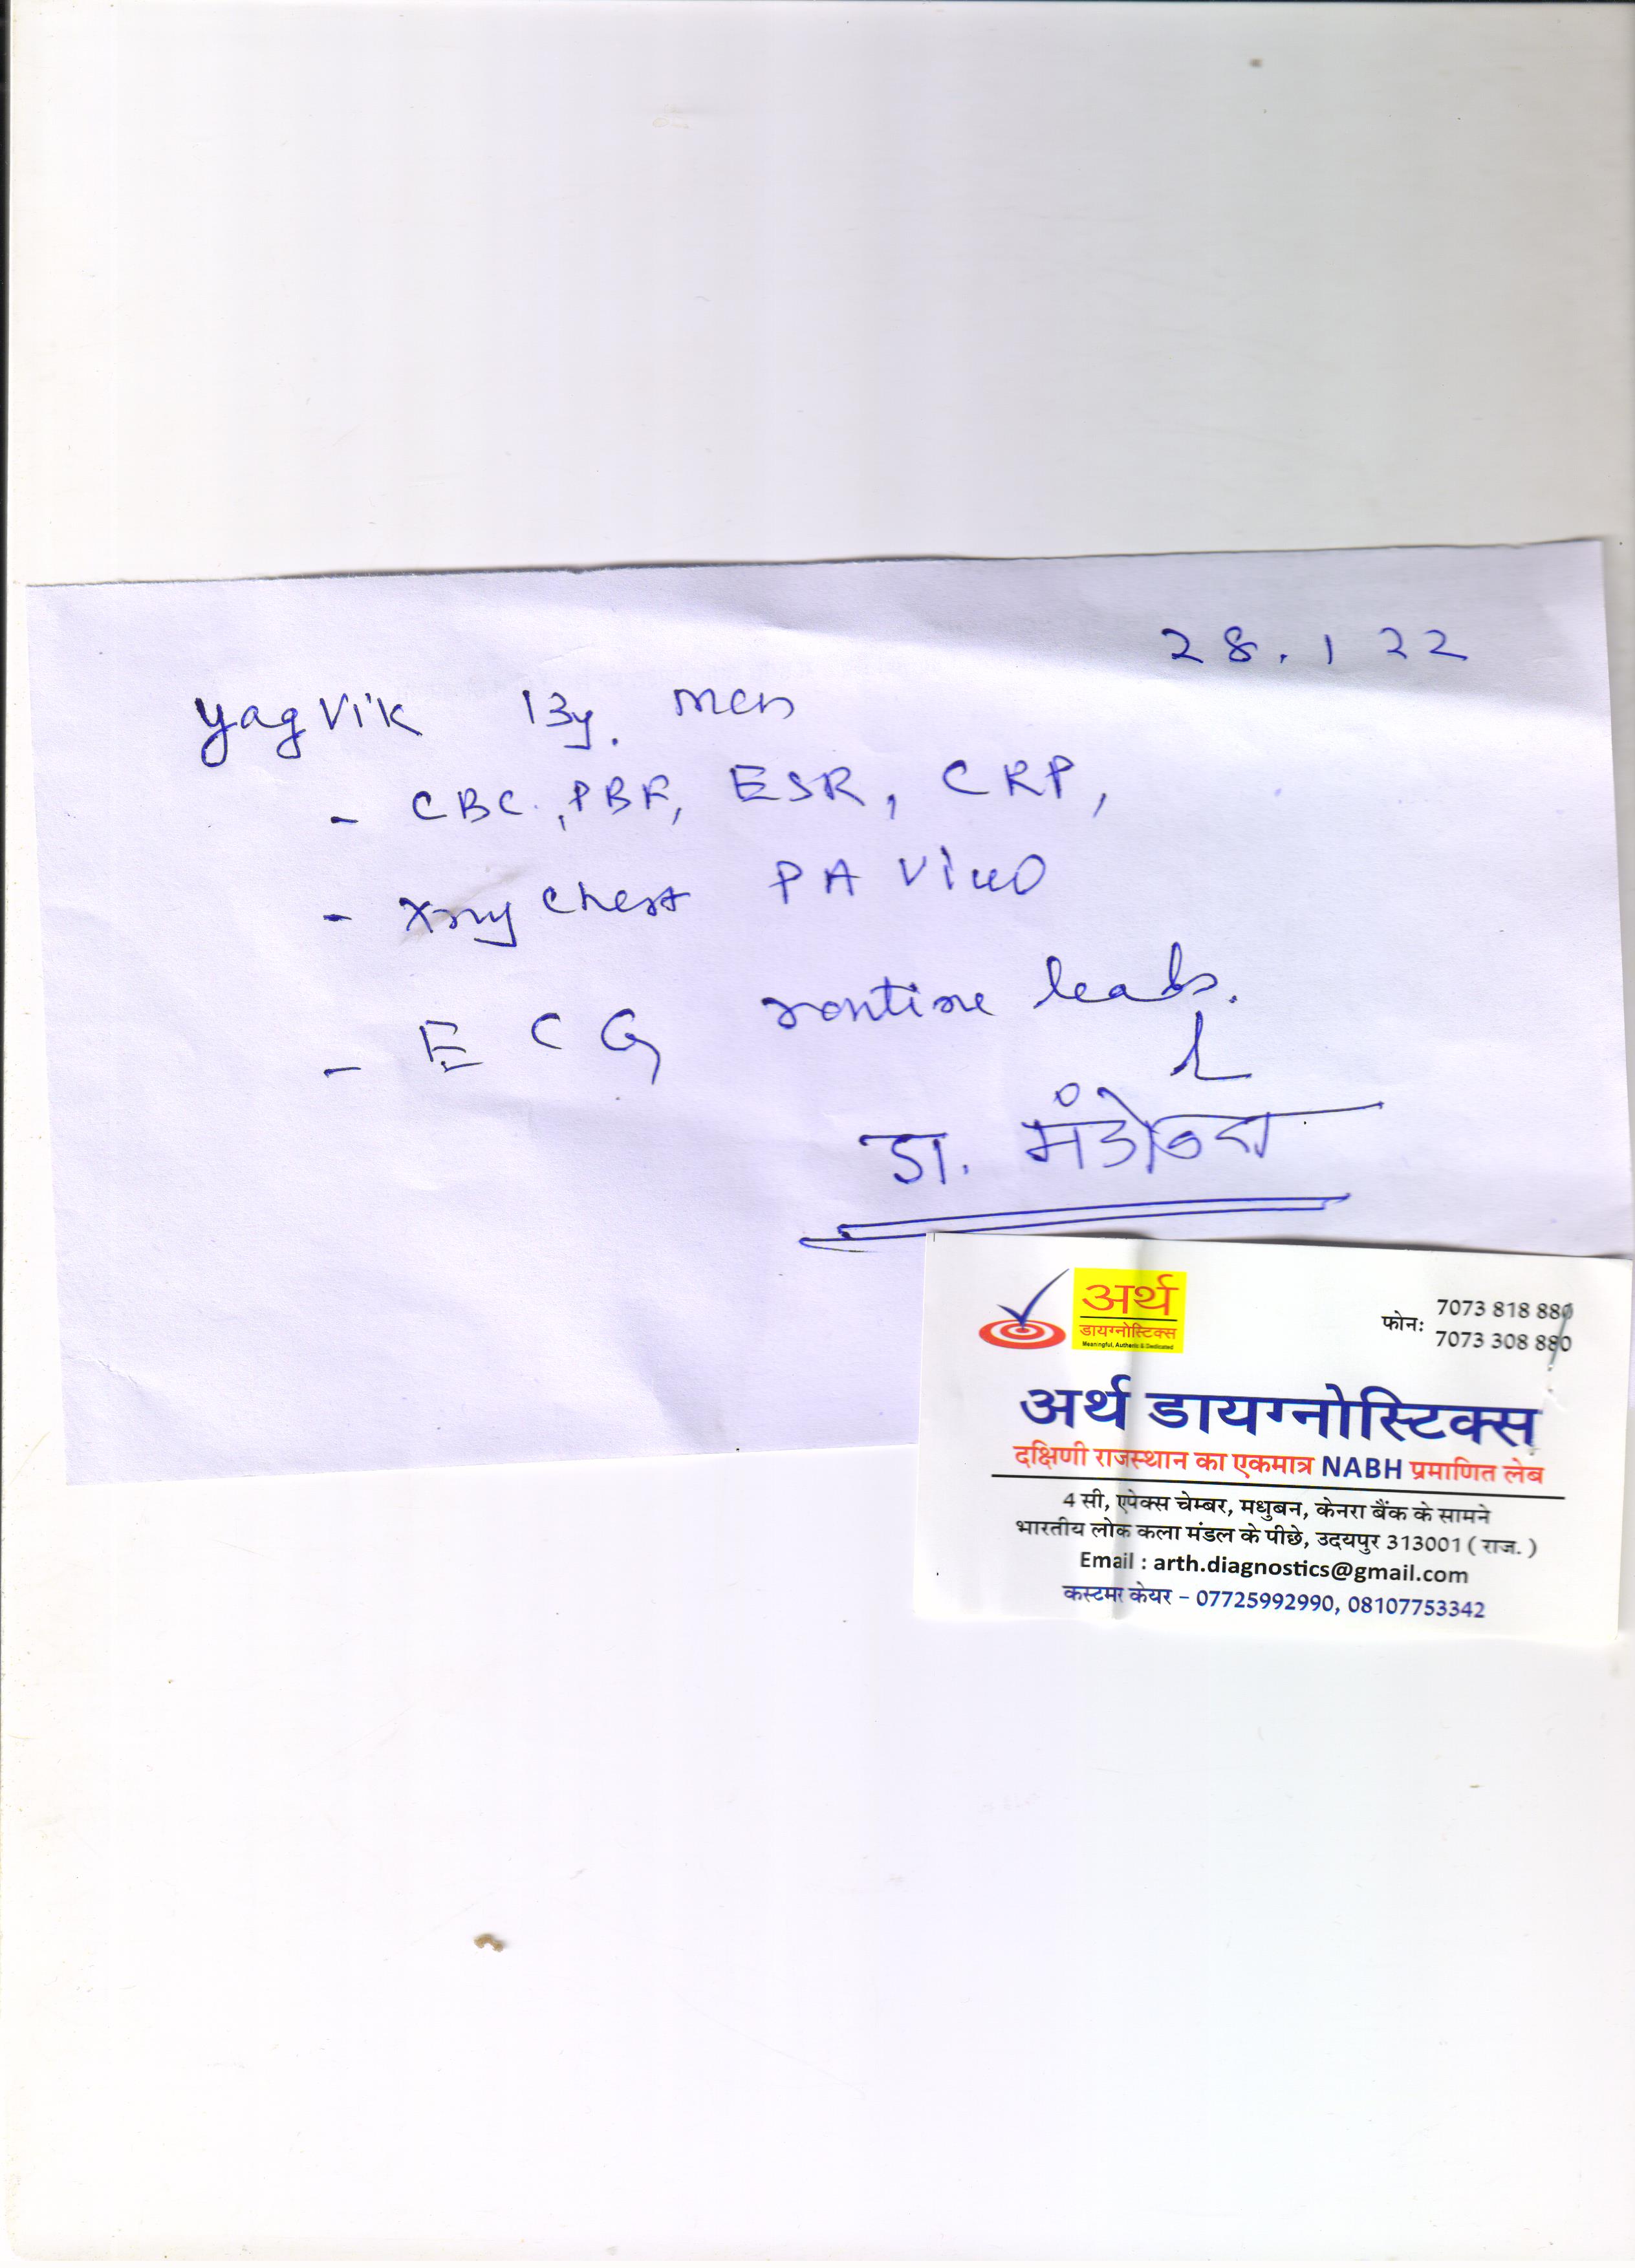 28.1 22
Yagvik 13y. men
- CBC, PBF, ESR, CRP,
- Xray Chest PA View
- ECG routine leads.
डा.
अर्थ
डायग्नोस्टिक्स
Meaningful, Authentic & Dedicated
फोन: 7073 818 880
7073 308 880
अर्थ डायग्नोस्टिक्स
दक्षिणी राजस्थान का एकमात्र NABH प्रमाणित लेब
4 सी, एपेक्स चेम्बर, मधुबन, केनरा बैंक के सामने
भारतीय लोक कला मंडल के पीछे, उदयपुर 313001 ( राज. )
Email : arth.diagnostics@gmail.com
कस्टमर केयर – 07725992990, 08107753342